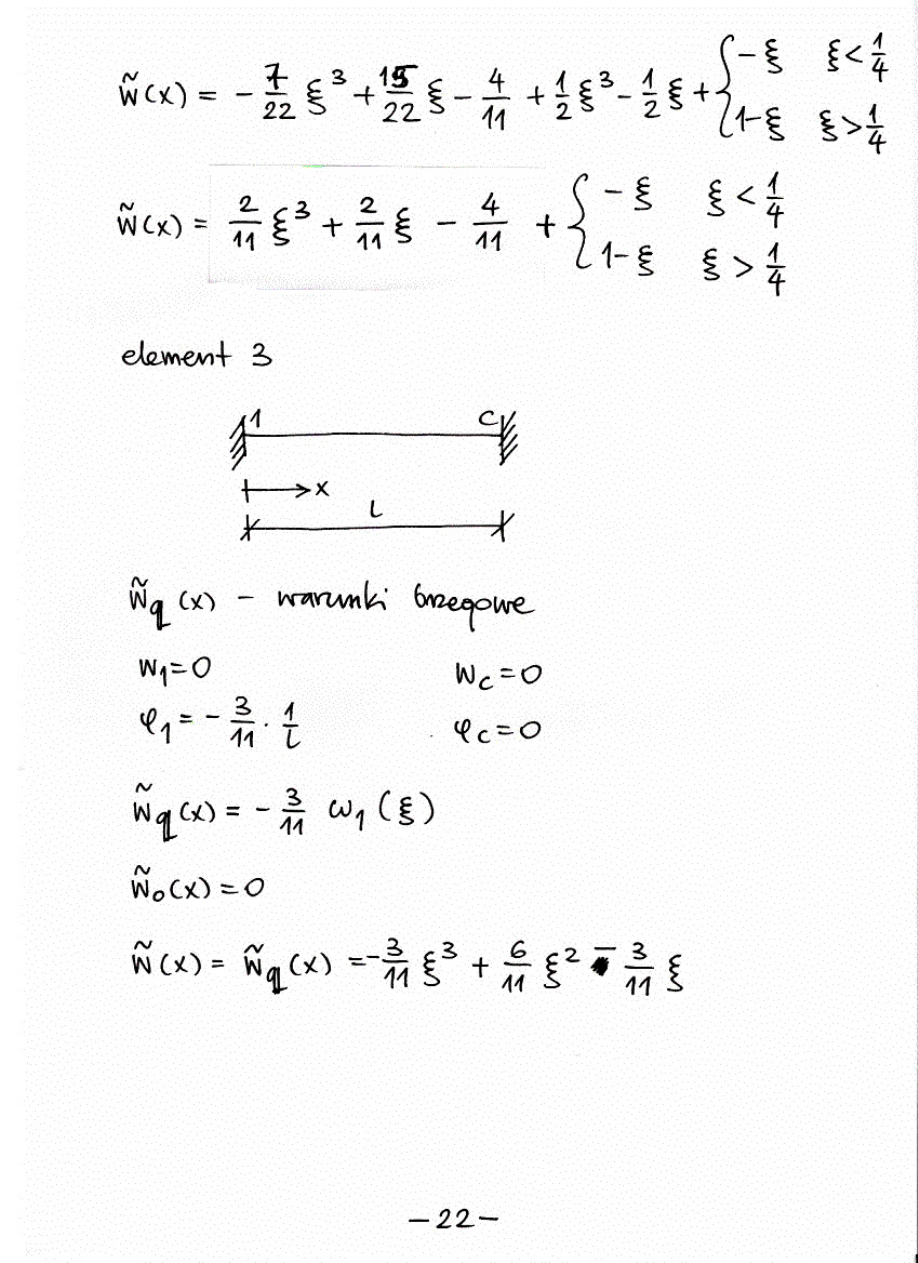 w̃(x) = -7/22 ξ³ + 15/22 ξ - 4/11 + 1/2 ξ³ - 1/2 ξ + { -ξ ξ<1/4 ; 1-ξ ξ>1/4
w̃(x) = 2/11 ξ³ + 2/11 ξ - 4/11 + { -ξ ξ<1/4 ; 1-ξ ξ>1/4
element 3
1 C
x
L
w̃q(x) - warunki brzegowe
w₁=0 wC=0
φ₁ = -3/11 · 1/L φC=0
w̃q(x) = -3/11 ω₁(ξ)
w̃₀(x) = 0
w̃(x) = w̃q(x) = -3/11 ξ³ + 6/11 ξ² - 3/11 ξ
-22-